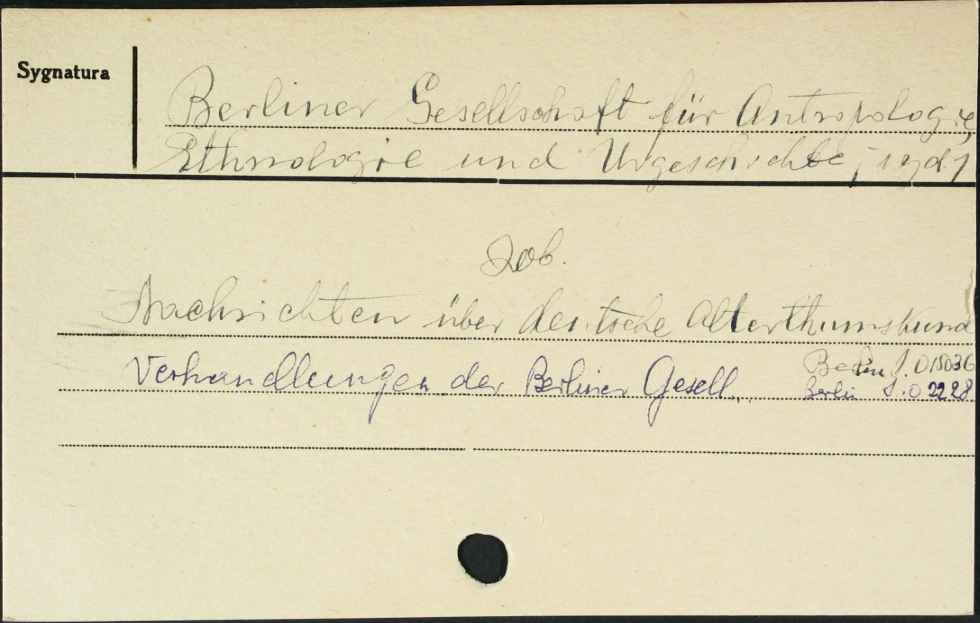 Sygnatura
Berliner Gesellschaft für Antropologie,
Ethnologie und Urgeschichte, red.
Zob.
Nachrichten über deutsche Alterthumskund
Berlin S. O 15036
Verhandlungen der Berliner Gesell.
Berlin S. O 2228